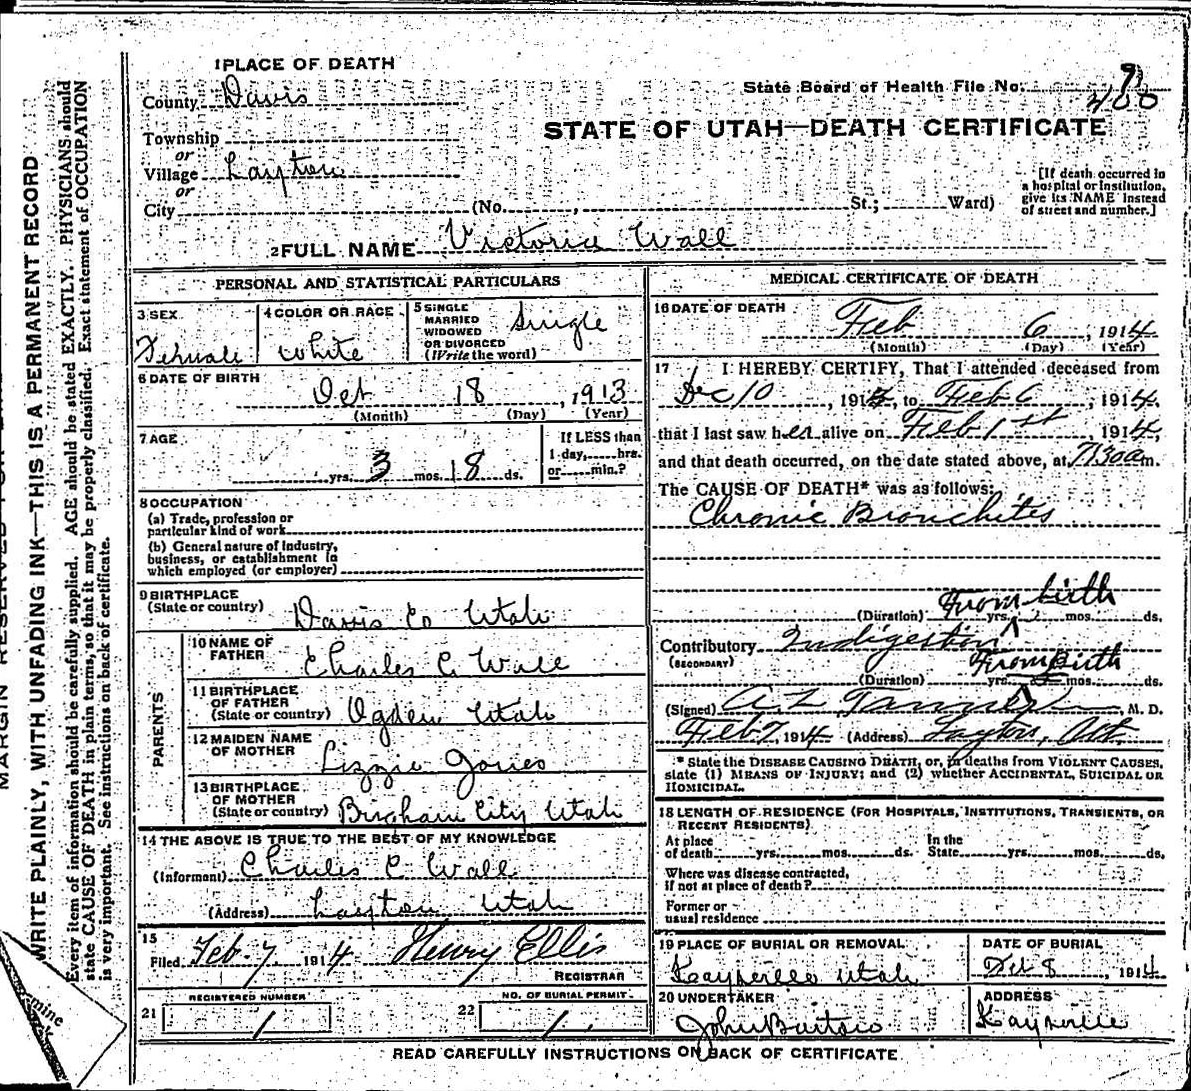 MARGIN RESERVED FOR
WRITE PLAINLY, WITH UNFADING INK—THIS IS A PERMANENT RECORD
Every item of information should be carefully supplied. AGE should be stated EXACTLY. PHYSICIANS should
state CAUSE OF DEATH in plain terms, so that it may be properly classified. Exact statement of OCCUPATION
is very important. See instructions on back of certificate.
1 PLACE OF DEATH
County Davis
Township
or
Village Layton
or
City (No. , St.; Ward)
State Board of Health File No. 9
400
STATE OF UTAH—DEATH CERTIFICATE
[If death occurred in
a hospital or institution,
give its NAME instead
of street and number.]
2 FULL NAME Victoria Wall
PERSONAL AND STATISTICAL PARTICULARS
3 SEX
Femali
4 COLOR OR RACE
White
5 SINGLE
MARRIED
WIDOWED
OR DIVORCED
(Write the word)
Single
6 DATE OF BIRTH
Oct 18, 1913
(Month) (Day) (Year)
7 AGE
yrs. 3 mos. 18 ds.
If LESS than
1 day, hrs.
or min.?
8 OCCUPATION
(a) Trade, profession or
particular kind of work
(b) General nature of Industry,
business, or establishment in
which employed (or employer)
9 BIRTHPLACE
(State or country) Davis Co Utah
PARENTS
10 NAME OF
FATHER Charles C. Wall
11 BIRTHPLACE
OF FATHER
(State or country) Ogden Utah
12 MAIDEN NAME
OF MOTHER Lizzie Jones
13 BIRTHPLACE
OF MOTHER
(State or country) Brigham City Utah
14 THE ABOVE IS TRUE TO THE BEST OF MY KNOWLEDGE
(Informant) Charles C Wall
(Address) Layton, Utah
15
Filed Feb. 7 1914 Henry Ellis
REGISTRAR
21 REGISTERED NUMBER
1
22 NO. OF BURIAL PERMIT
1
MEDICAL CERTIFICATE OF DEATH
16 DATE OF DEATH
Feb 6, 1914
(Month) (Day) (Year)
17 I HEREBY CERTIFY, That I attended deceased from
Dec 10, 1913, to Feb 6, 1914,
that I last saw her alive on Feb 1st 1914,
and that death occurred, on the date stated above, at 7:30am.
The CAUSE OF DEATH* was as follows:
Chronic Bronchites
From birth
(Duration) yrs. mos. ds.
Contributory Indigestion
(SECONDARY)
From Birth
(Duration) yrs. mos. ds.
(Signed) A. L. Tanner M. D.
Feb 7, 1914 (Address) Layton, Ut.
* State the DISEASE CAUSING DEATH, or, in deaths from VIOLENT CAUSES,
state (1) MEANS OF INJURY; and (2) whether ACCIDENTAL, SUICIDAL OR
HOMICIDAL.
18 LENGTH OF RESIDENCE (FOR HOSPITALS, INSTITUTIONS, TRANSIENTS, OR
RECENT RESIDENTS)
At place
of death yrs. mos. ds.
In the
State yrs. mos. ds.
Where was disease contracted,
if not at place of death?
Former or
usual residence
19 PLACE OF BURIAL OR REMOVAL
Kaysville Utah
DATE OF BURIAL
8, 1914
20 UNDERTAKER
John Barton
ADDRESS
Kaysville
READ CAREFULLY INSTRUCTIONS ON BACK OF CERTIFICATE